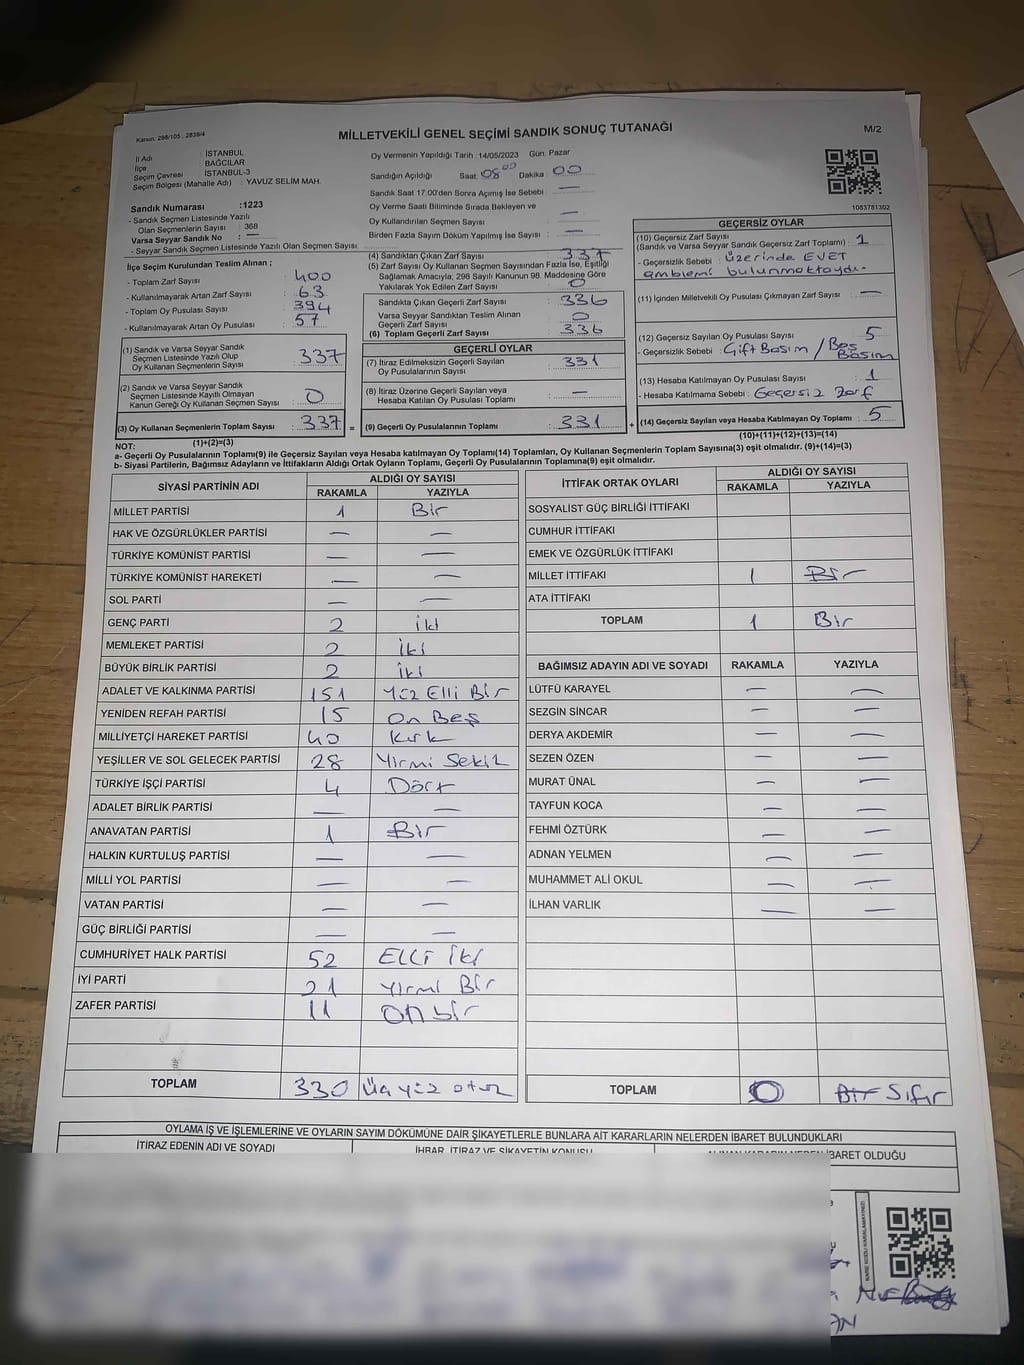 Kanun: 298/105 , 2839/4
MİLLETVEKİLİ GENEL SEÇİMİ SANDIK SONUÇ TUTANAĞI
M/2
İl Adı : İSTANBUL
İlçe : BAĞCILAR
Seçim Çevresi : İSTANBUL-3
Seçim Bölgesi (Mahalle Adı) : YAVUZ SELİM MAH.
Sandık Numarası :1223
- Sandık Seçmen Listesinde Yazılı
Olan Seçmenlerin Sayısı : 368
Varsa Seyyar Sandık No : —
- Seyyar Sandık Seçmen Listesinde Yazılı Olan Seçmen Sayısı:
İlçe Seçim Kurulundan Teslim Alınan ;
- Toplam Zarf Sayısı : 400
- Kullanılmayarak Artan Zarf Sayısı : 63
- Toplam Oy Pusulası Sayısı : 394
- Kullanılmayarak Artan Oy Pusulası : 57
(1) Sandık ve Varsa Seyyar Sandık
Seçmen Listesinde Yazılı Olup
Oy Kullanan Seçmenlerin Sayısı : 337
(2) Sandık ve Varsa Seyyar Sandık
Seçmen Listesinde Kayıtlı Olmayan
Kanun Gereği Oy Kullanan Seçmen Sayısı : 0
(3) Oy Kullanan Seçmenlerin Toplam Sayısı : 337 =
(1)+(2)=(3)
Oy Vermenin Yapıldığı Tarih :14/05/2023 Gün: Pazar
Sandığın Açıldığı Saat: 08 00 Dakika : 00
Sandık Saat 17:00'den Sonra Açımış İse Sebebi : —
Oy Verme Saati Bitiminde Sırada Bekleyen ve
Oy Kullandırılan Seçmen Sayısı : —
Birden Fazla Sayım Döküm Yapılmış İse Sayısı : —
(4) Sandıktan Çıkan Zarf Sayısı : 337
(5) Zarf Sayısı Oy Kullanan Seçmen Sayısından Fazla İse, Eşitliği
Sağlamak Amacıyla; 298 Sayılı Kanunun 98. Maddesine Göre
Yakılarak Yok Edilen Zarf Sayısı : 0
Sandıkta Çıkan Geçerli Zarf Sayısı : 336
Varsa Seyyar Sandıktan Teslim Alınan
Geçerli Zarf Sayısı : 0
(6) Toplam Geçerli Zarf Sayısı : 336
GEÇERLİ OYLAR
(7) İtiraz Edilmeksizin Geçerli Sayılan
Oy Pusulalarının Sayısı : 331
(8) İtiraz Üzerine Geçerli Sayılan veya
Hesaba Katılan Oy Pusulası Toplamı : —
(9) Geçerli Oy Pusulalarının Toplamı : 331 +
1083781302
GEÇERSİZ OYLAR
(10) Geçersiz Zarf Sayısı
(Sandık ve Varsa Seyyar Sandık Geçersiz Zarf Toplamı) : 1
- Geçersizlik Sebebi : üzerinde EVET
amblemi bulunmaktaydı.
(11) İçinden Milletvekili Oy Pusulası Çıkmayan Zarf Sayısı : —
(12) Geçersiz Sayılan Oy Pusulası Sayısı : 5
- Geçersizlik Sebebi : Çift Basım / Boş Basım
(13) Hesaba Katılmayan Oy Pusulası Sayısı : 1
- Hesaba Katılmama Sebebi : Geçersiz zarf
(14) Geçersiz Sayılan veya Hesaba Katılmayan Oy Toplamı : 5
(10)+(11)+(12)+(13)=(14)
NOT:
a- Geçerli Oy Pusulalarının Toplamı(9) ile Geçersiz Sayılan veya Hesaba katılmayan Oy Toplamı(14) Toplamları, Oy Kullanan Seçmenlerin Toplam Sayısına(3) eşit olmalıdır. (9)+(14)=(3)
b- Siyasi Partilerin, Bağımsız Adayların ve İttifakların Aldığı Ortak Oyların Toplamı, Geçerli Oy Pusulalarının Toplamına(9) eşit olmalıdır.
SİYASİ PARTİNİN ADI ALDIĞI OY SAYISI
RAKAMLA YAZIYLA
MİLLET PARTİSİ 1 Bir
HAK VE ÖZGÜRLÜKLER PARTİSİ — —
TÜRKİYE KOMÜNİST PARTİSİ — —
TÜRKİYE KOMÜNİST HAREKETİ — —
SOL PARTİ — —
GENÇ PARTİ 2 iki
MEMLEKET PARTİSİ 2 iki
BÜYÜK BİRLİK PARTİSİ 2 iki
ADALET VE KALKINMA PARTİSİ 151 Yüz Elli Bir
YENİDEN REFAH PARTİSİ 15 On Beş
MİLLİYETÇİ HAREKET PARTİSİ 40 Kırk
YEŞİLLER VE SOL GELECEK PARTİSİ 28 Yirmi Sekiz
TÜRKİYE İŞÇİ PARTİSİ 4 Dört
ADALET BİRLİK PARTİSİ — —
ANAVATAN PARTİSİ 1 Bir
HALKIN KURTULUŞ PARTİSİ — —
MİLLİ YOL PARTİSİ — —
VATAN PARTİSİ — —
GÜÇ BİRLİĞİ PARTİSİ — —
CUMHURİYET HALK PARTİSİ 52 Elli iki
İYİ PARTİ 21 Yirmi Bir
ZAFER PARTİSİ 11 On bir
TOPLAM 330 Üç yüz otuz
İTTİFAK ORTAK OYLARI ALDIĞI OY SAYISI
RAKAMLA YAZIYLA
SOSYALİST GÜÇ BİRLİĞİ İTTİFAKI
CUMHUR İTTİFAKI
EMEK VE ÖZGÜRLÜK İTTİFAKI
MİLLET İTTİFAKI 1 Bir
ATA İTTİFAKI
TOPLAM 1 Bir
BAĞIMSIZ ADAYIN ADI VE SOYADI RAKAMLA YAZIYLA
LÜTFÜ KARAYEL — —
SEZGİN SİNCAR — —
DERYA AKDEMİR — —
SEZEN ÖZEN — —
MURAT ÜNAL — —
TAYFUN KOCA — —
FEHMİ ÖZTÜRK — —
ADNAN YELMEN — —
MUHAMMET ALİ OKUL — —
İLHAN VARLIK — —
TOPLAM 0 Bir Sıfır
OYLAMA İŞ VE İŞLEMLERİNE VE OYLARIN SAYIM DÖKÜMÜNE DAİR ŞİKAYETLERLE BUNLARA AİT KARARLARIN NELERDEN İBARET BULUNDUKLARI
İTİRAZ EDENİN ADI VE SOYADI İHBAR, İTİRAZ VE ŞİKAYETİN KONUSU İBARET OLDUĞU